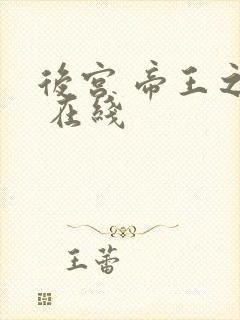 後宮 帝王之
在綫
王蕾